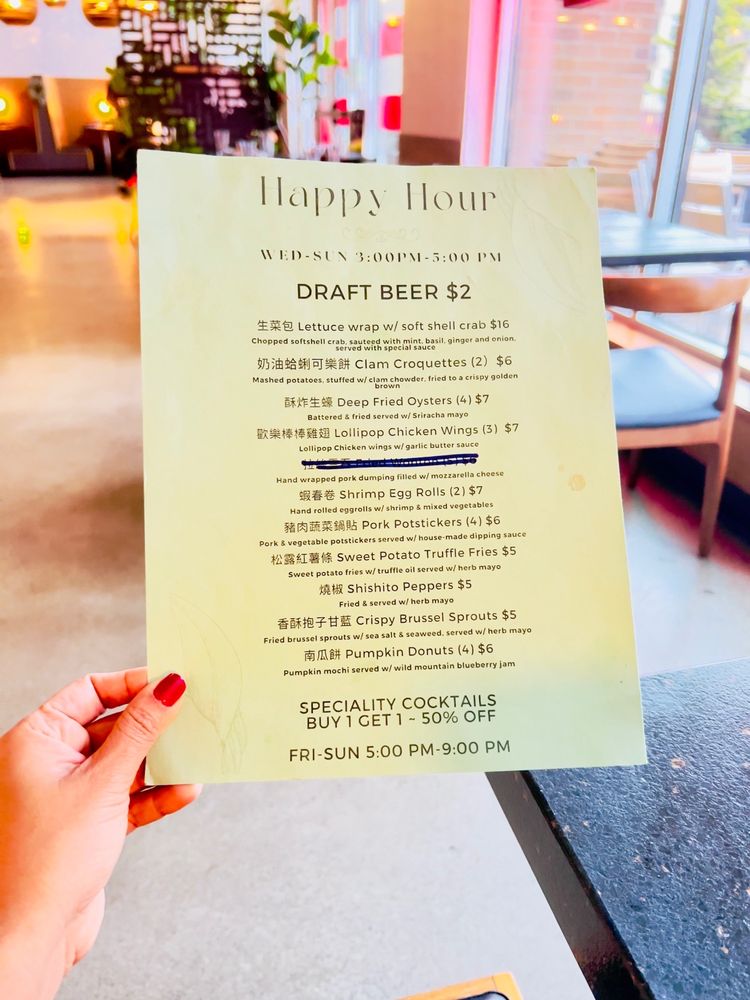 Happy Hour
WED-SUN 3:00PM-5:00 PM
DRAFT BEER $2
生菜包 Lettuce wrap w/ soft shell crab $16
Chopped softshell crab, sauteed with mint, basil, ginger and onion,
served with special sauce
奶油蛤蜊可樂餅 Clam Croquettes (2) $6
Mashed potatoes, stuffed w/ clam chowder, fried to a crispy golden
brown
酥炸生蠔 Deep Fried Oysters (4) $7
Battered & fried served w/ Sriracha mayo
歡樂棒棒雞翅 Lollipop Chicken Wings (3) $7
Lollipop Chicken wings w/ garlic butter sauce
Hand wrapped pork dumping filled w/ mozzarella cheese
蝦春卷 Shrimp Egg Rolls (2) $7
Hand rolled eggrolls w/ shrimp & mixed vegetables
豬肉蔬菜鍋貼 Pork Potstickers (4) $6
Pork & vegetable potstickers served w/ house-made dipping sauce
松露紅薯條 Sweet Potato Truffle Fries $5
Sweet potato fries w/ truffle oil served w/ herb mayo
燒椒 Shishito Peppers $5
Fried & served w/ herb mayo
香酥抱子甘藍 Crispy Brussel Sprouts $5
Fried brussel sprouts w/ sea salt & seaweed, served w/ herb mayo
南瓜餅 Pumpkin Donuts (4) $6
Pumpkin mochi served w/ wild mountain blueberry jam
SPECIALITY COCKTAILS
BUY 1 GET 1 ~ 50% OFF
FRI-SUN 5:00 PM-9:00 PM